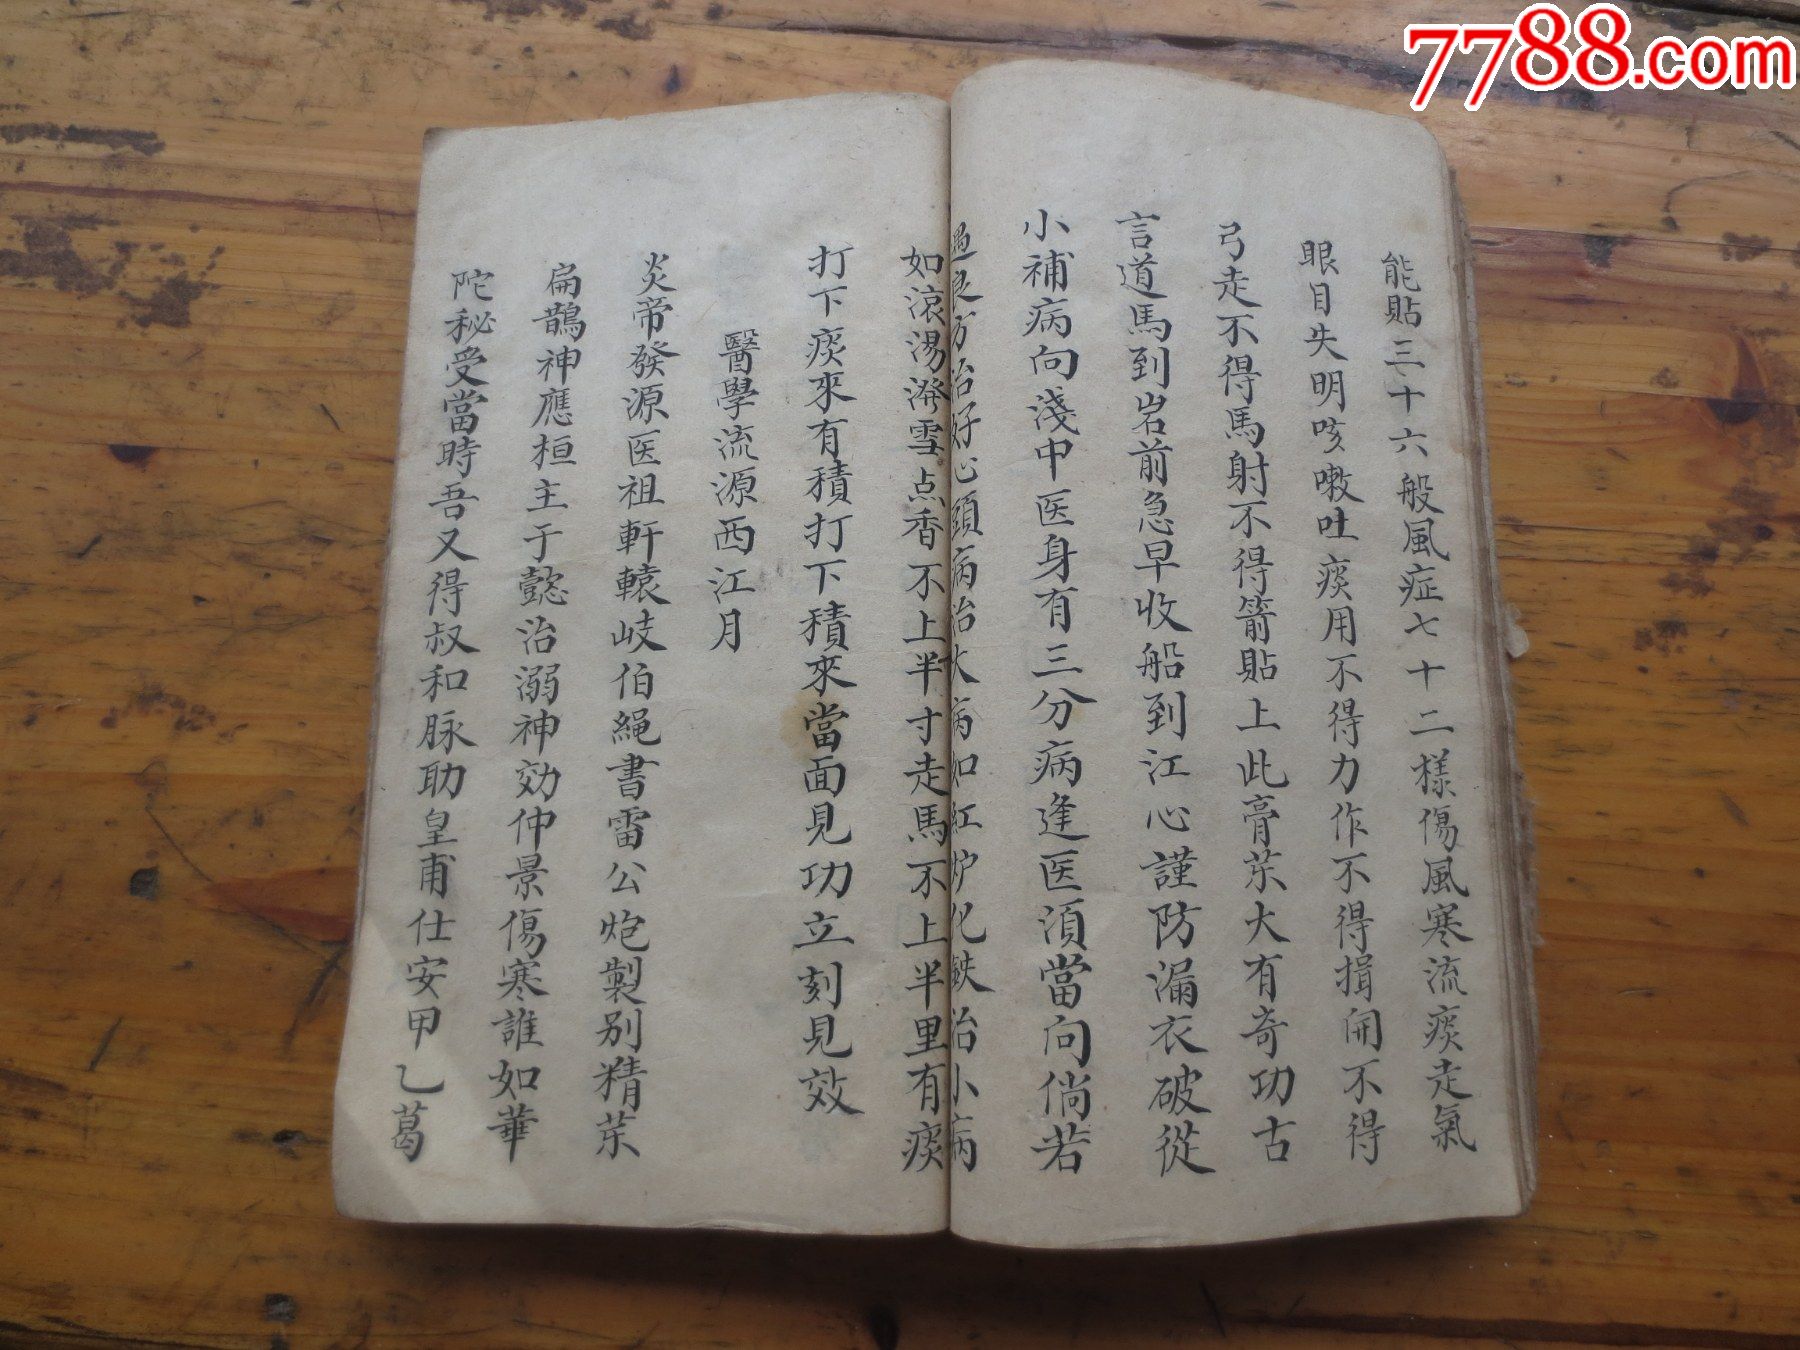 7788.com
能貼三十六般風症七十二樣傷風寒流痰走氣
眼目失明咳嗽吐痰用不得力作不得揖開不得
弓走不得馬射不得箭貼上此膏茮大有奇功古
言道馬到岩前急早收船到江心謹防漏衣破從
小補病向淺中医身有三分病逢医須當向倘若
遇良方治好心頭病治大病如紅炉化鉄治小病
如滾湯潑雪点香不上半寸走馬不上半里有痰
打下痰來有積打下積來當面見功立刻見效
醫學流源西江月
炎帝發源医祖軒轅岐伯繩書雷公炮製别精茮
扁鵲神應桓主于懿治溺神効仲景傷寒誰如華
陀秘受當時吾又得叔和脉助皇甫仕安甲乙葛